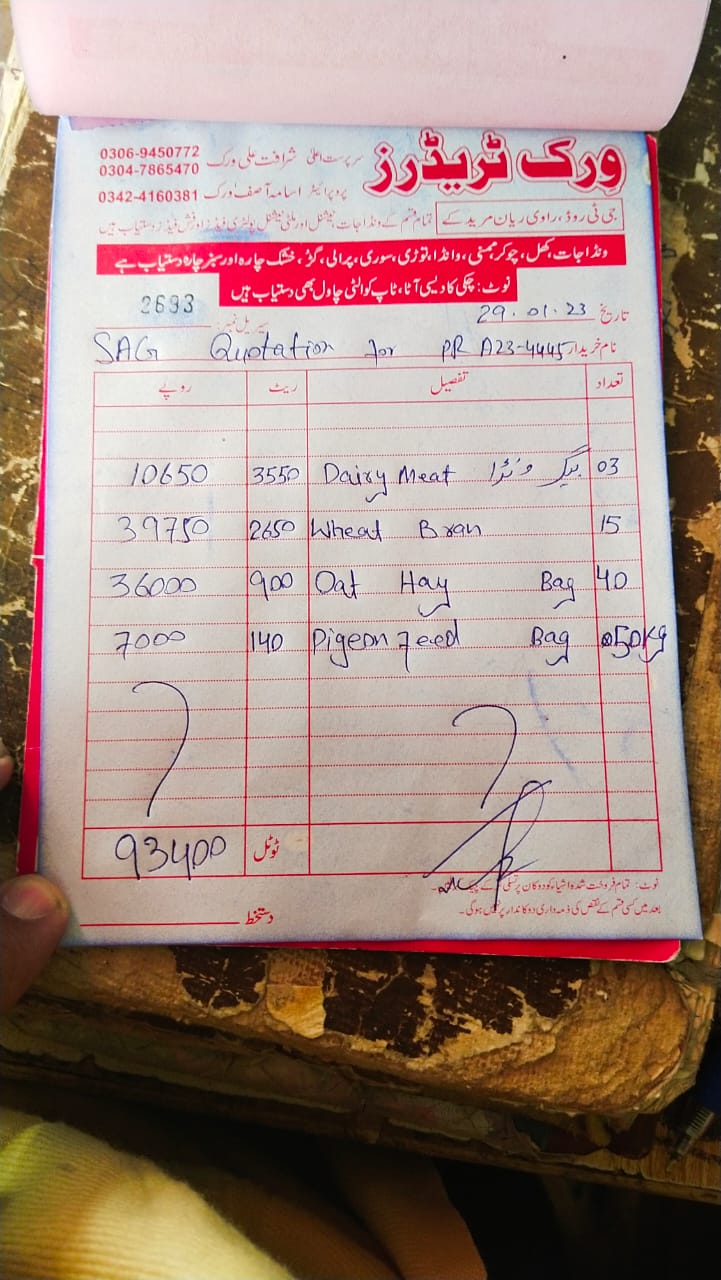 ورک ٹریڈرز
سرپرست اعلیٰ شرافت علی ورک 0306-9450772
0304-7865470
پروپرائیٹر اسامہ آصف ورک 0342-4160381
جی ٹی روڈ، راوی ریان مریدکے
تمام قسم کے ونڈا جات نیشنل اور ملٹی نیشنل پولٹری فیڈز اور فش فیڈز دستیاب ہیں
ونڈا جات، کھل، چوکر، مِمنی، وانڈا، توڑی، سوری، پرالی، گڑ، خشک چارہ اور سبز چارہ دستیاب ہے
نوٹ: چکی کا دیسی آٹا، ٹاپ کوالٹی چاول بھی دستیاب ہیں
تاریخ 29.01.23 سیریل نمبر: 2693
نام خریدار SAG Quotation for PR A23-4445
تعداد تفصیل ریٹ روپے
03 Dairy Meat ونڈا بیگ 3550 10650
15 Wheat Bran 2650 39750
40 Oat Hay Bag 900 36000
50kg Pigeon Feed Bag 140 7000
ٹوٹل 93400
نوٹ: تمام فروخت شدہ اشیاء کو دوکان پر تسلی کے
بعد میں کسی قسم کے نقص کی ذمہ داری دوکاندار پر نہیں ہوگی۔
دستخط